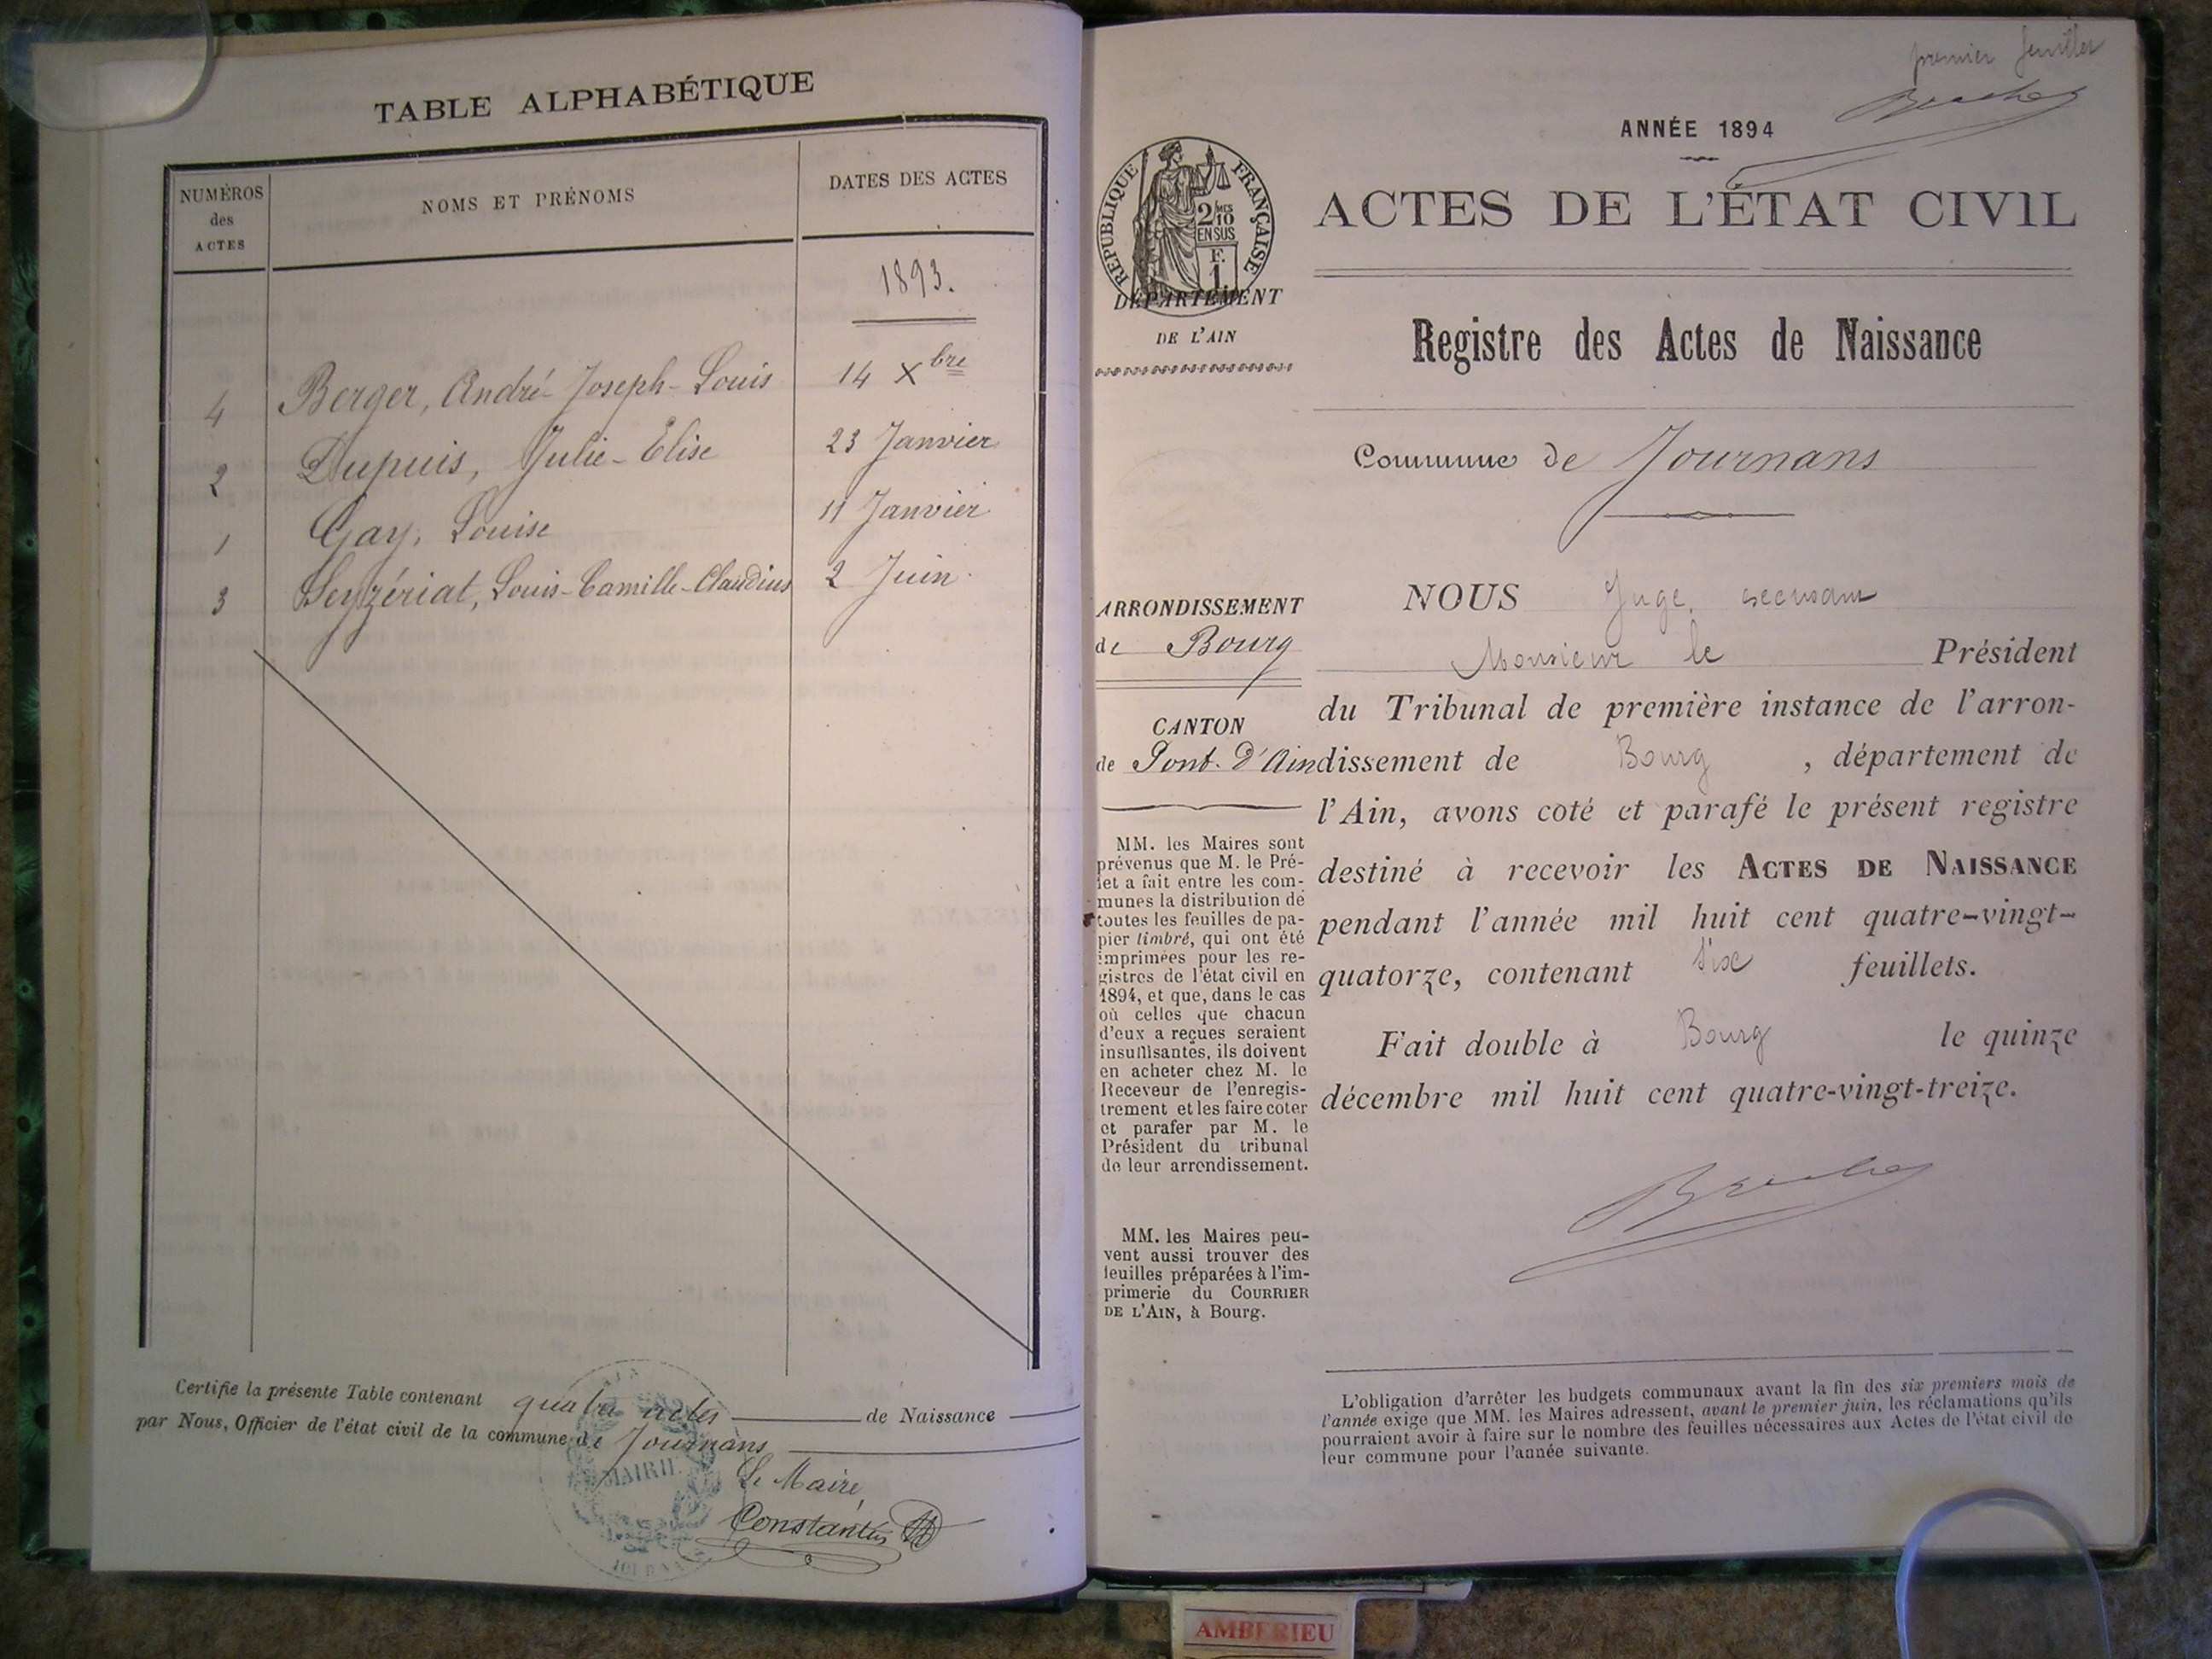 TABLE ALPHABÉTIQUE
NUMÉROS
des
ACTES
NOMS ET PRÉNOMS
DATES DES ACTES
1893.
4 Berger, André-Joseph-Louis 14 Xbre
2 Dupuis, Julie-Elise 23 Janvier
1 Gay, Louise 11 Janvier
3 Seyzériat, Louis-Camille-Claudius 2 Juin
Certifie la présente Table contenant quatre actes de Naissance
par Nous, Officier de l'état civil de la commune de Journans
MAIRIE
Le Maire,
premier feuillet
ANNÉE 1894
RÉPUBLIQUE FRANÇAISE
2/10 MES
EN SUS
F.
1
ACTES DE L'ÉTAT CIVIL
DÉPARTEMENT
DE L'AIN
Registre des Actes de Naissance
Commune de Journans
ARRONDISSEMENT
de Bourg
CANTON
de Pont-d'Ain
MM. les Maires sont
prévenus que M. le Pré-
fet a fait entre les com-
munes la distribution de
toutes les feuilles de pa-
pier timbré, qui ont été
imprimées pour les re-
gistres de l'état civil en
1894, et que, dans le cas
où celles que chacun
d'eux a reçues seraient
insuffisantes, ils doivent
en acheter chez M. le
Receveur de l'enregis-
trement et les faire coter
et parafer par M. le
Président du tribunal
de leur arrondissement.
MM. les Maires peu-
vent aussi trouver des
feuilles préparées à l'im-
primerie du COURRIER
DE L'AIN, à Bourg.
NOUS Juge,
Monsieur le Président
du Tribunal de première instance de l'arron-
dissement de Bourg, département de
l'Ain, avons coté et parafé le présent registre
destiné à recevoir les ACTES DE NAISSANCE
pendant l'année mil huit cent quatre-vingt-
quatorze, contenant six feuillets.
Fait double à Bourg le quinze
décembre mil huit cent quatre-vingt-treize.
L'obligation d'arrêter les budgets communaux avant la fin des six premiers mois de
l'année exige que MM. les Maires adressent, avant le premier juin, les réclamations qu'ils
pourraient avoir à faire sur le nombre des feuilles nécessaires aux Actes de l'état civil de
leur commune pour l'année suivante.
AMBERIEU